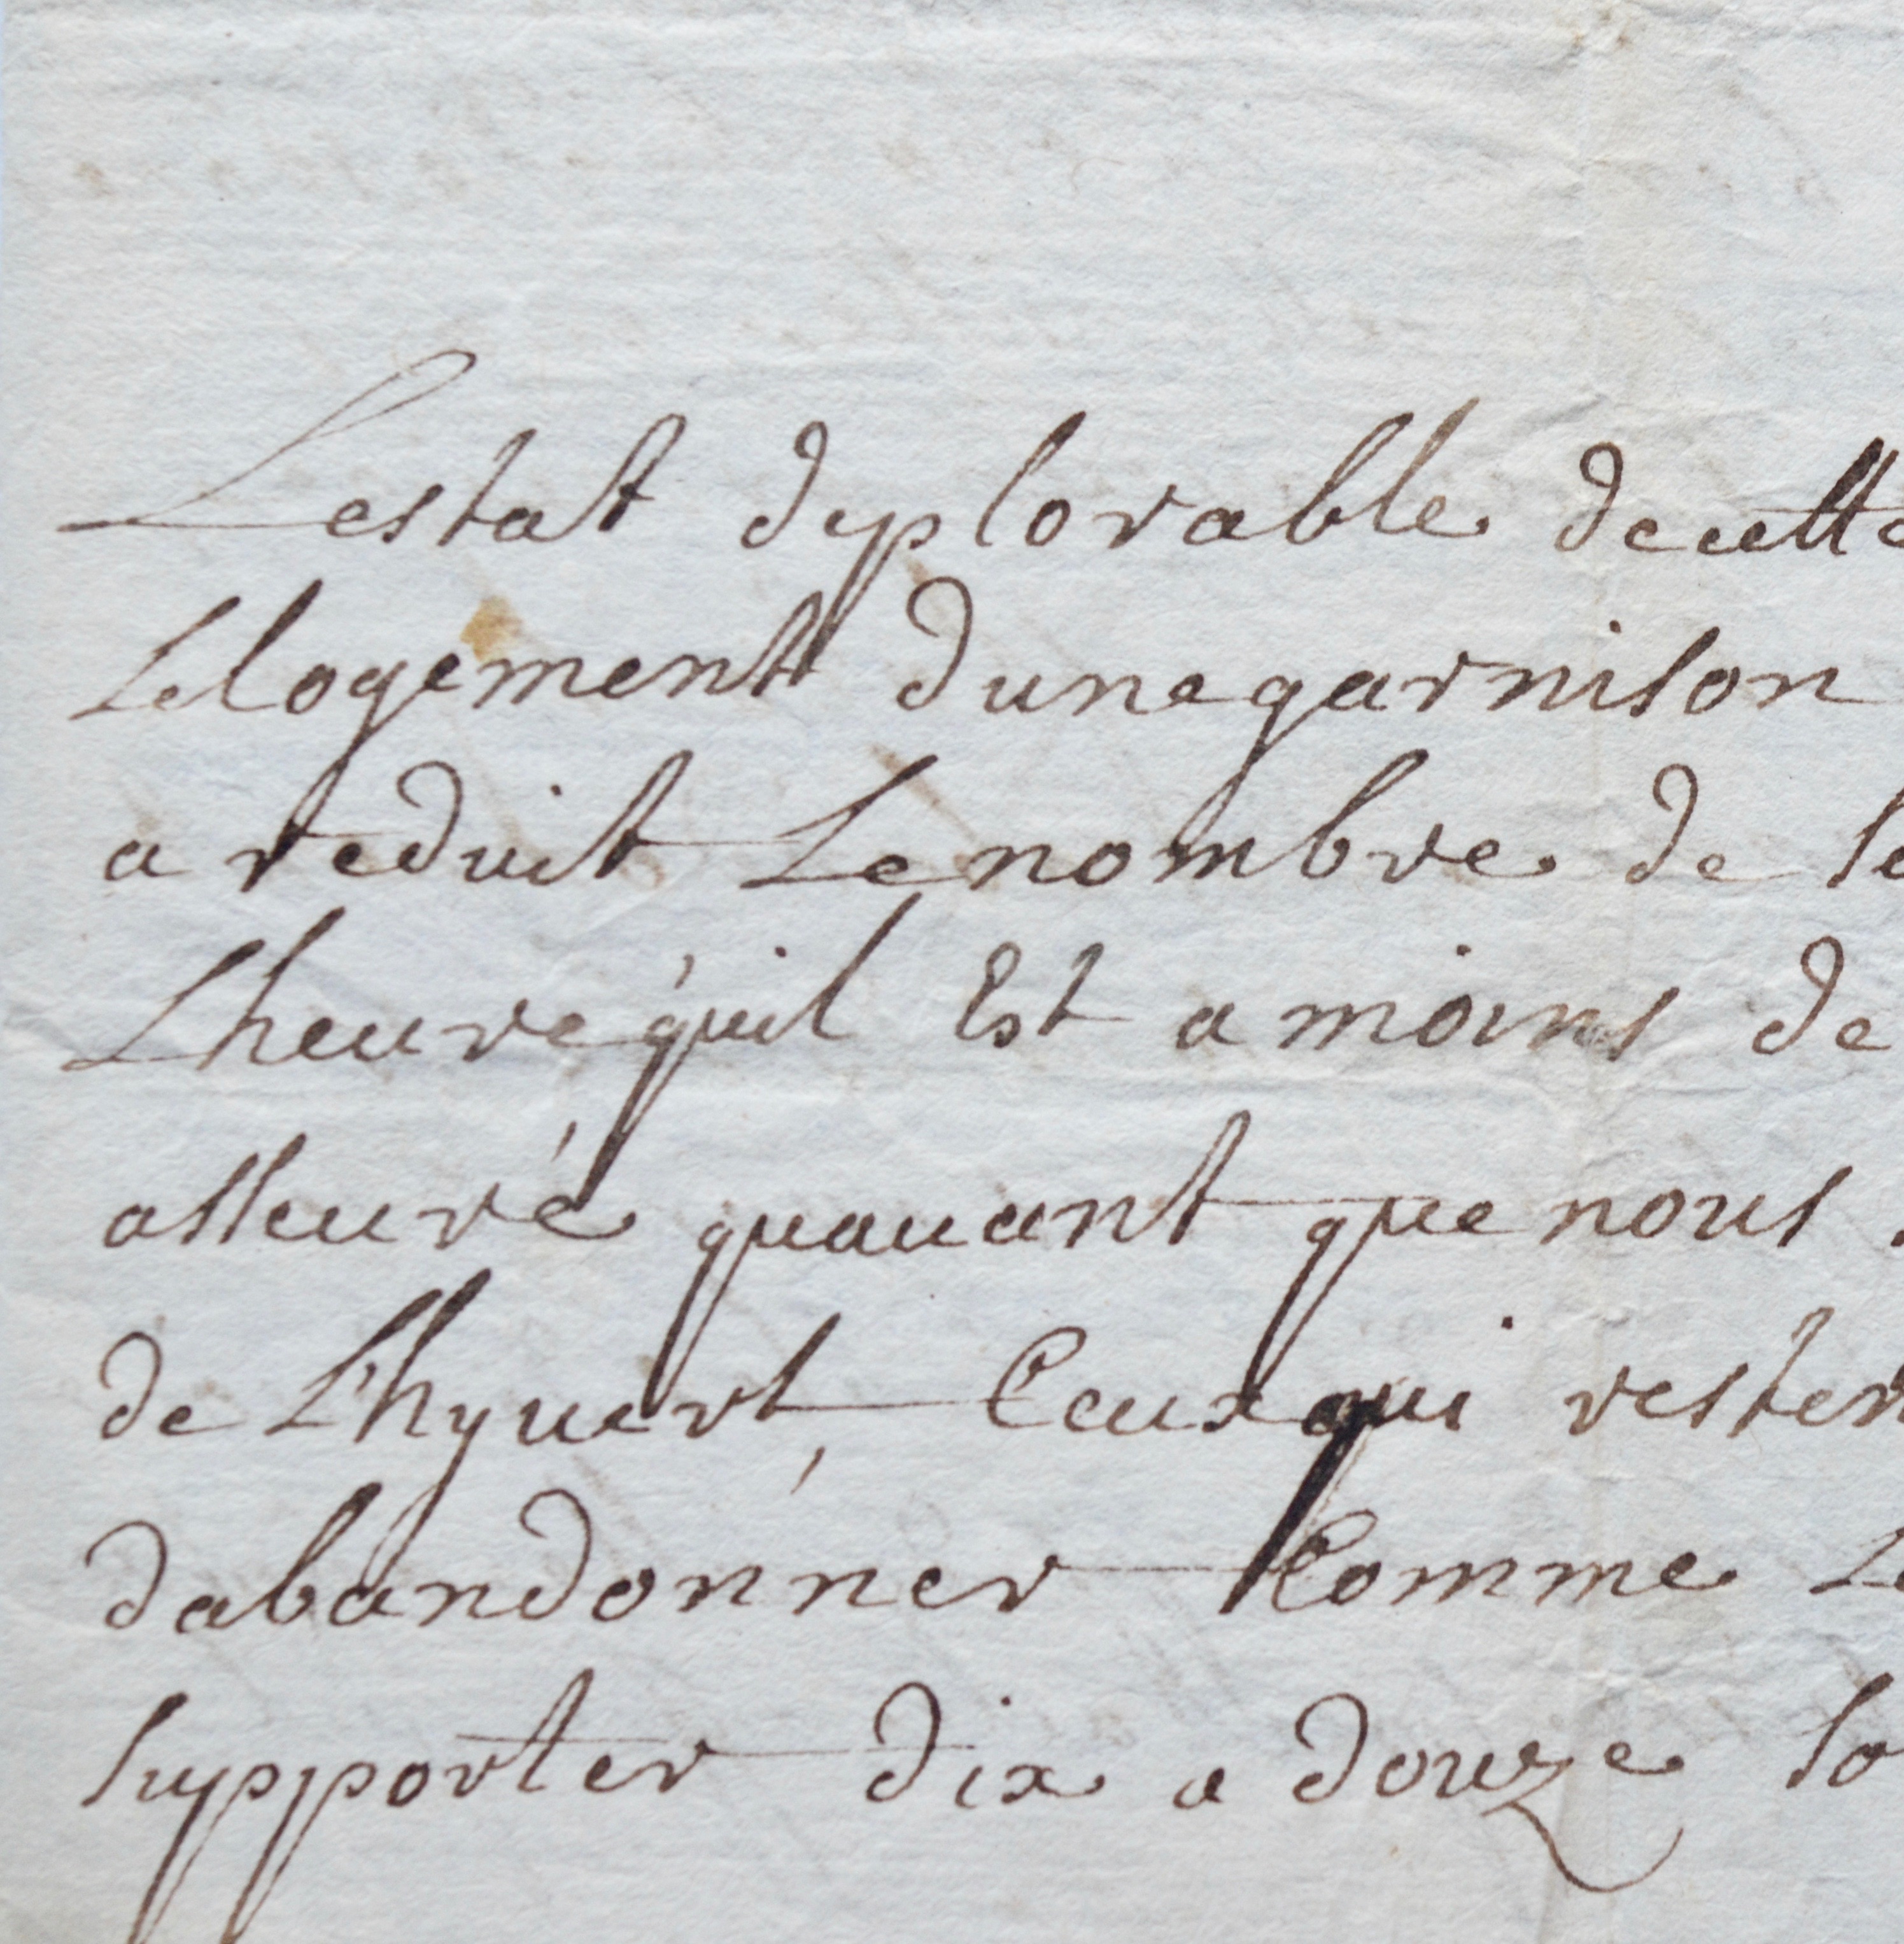 Lestat deplorable de cette
Le logement dune garnison
a reduit Le nombre de
Lheure quil Est a moins de
asseuré quauant que nous
de Lhyuert, Ceux qui resten
dabandonner Comme Le
supporter dix a douze so